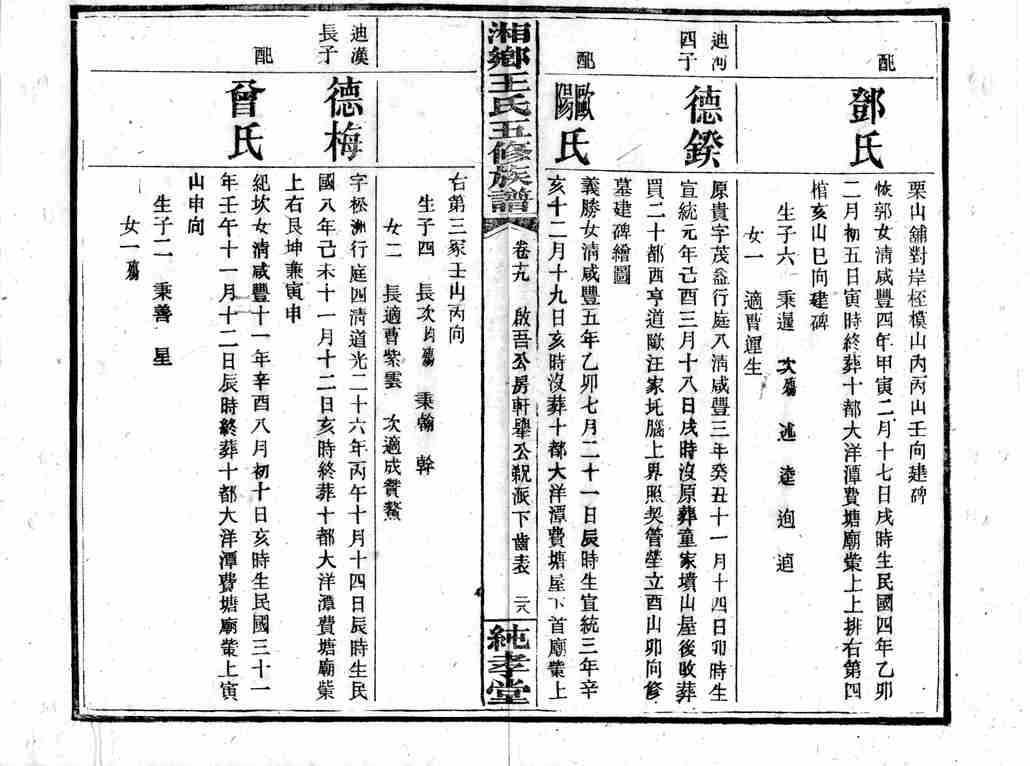 栗山舖對岸桎模山內丙山壬向建碑
配
鄧氏
恢郭女清咸豐四年甲寅二月十七日戌時生民國四年乙卯
二月初五日寅時終葬十都大洋潭費塘廟棠上上排右第四
棺亥山巳向建碑
生子六 秉暹 次殤 述 逵 迿 逌
女一 適曹運生
迪河
四子
德鍨
原貴字茂益行庭八清咸豐三年癸丑十一月十四日卯時生
宣統元年己酉三月十八日戌時沒原葬童家墳山屋後改葬
買二十都酉享道歐汪家圫腦上界照契管塋立酉山卯向修
墓建碑繪圖
配
歐陽氏
義勝女清咸豐五年乙卯七月二十一日辰時生宣統三年辛
亥十二月十九日亥時沒葬十都大洋潭費塘屋下首廟棠上
湘鄉王氏五修族譜
卷十九 啟吾公房軒舉公觀派下齒表 二八
純孝堂
右第三冢壬山丙向
生子四 長次均殤 秉翰 幹
女二 長適曹紫雲 次適成贊鰲
迪漢
長子
德梅
字松洲行庭四清道光二十六年丙午十月十四日辰時生民
國八年己未十一月十二日亥時終葬十都大洋潭費塘廟棠
上右艮坤兼寅申
配
曾氏
紀坎女清咸豐十一年辛酉八月初十日亥時生民國三十一
年壬午十一月十二日辰時終葬十都大洋潭費塘廟棠上寅
山申向
生子二 秉善 星
女一殤